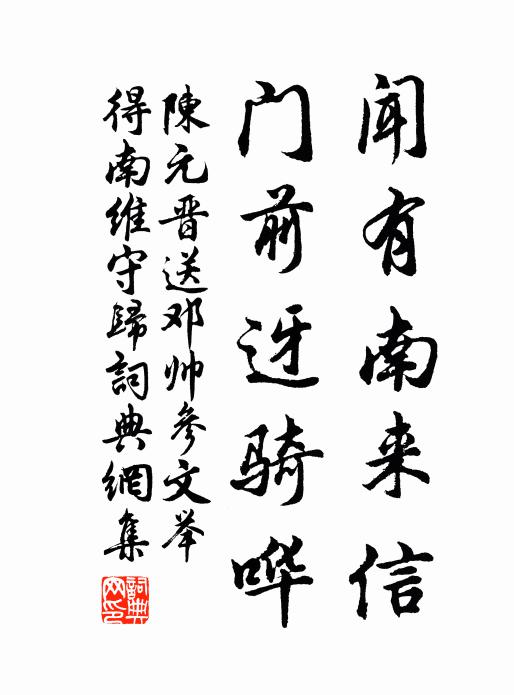 闻有南来信
门前迓骑哗
陳元晋送邓帅參文举
得南維守歸詞典網集
詞典网印